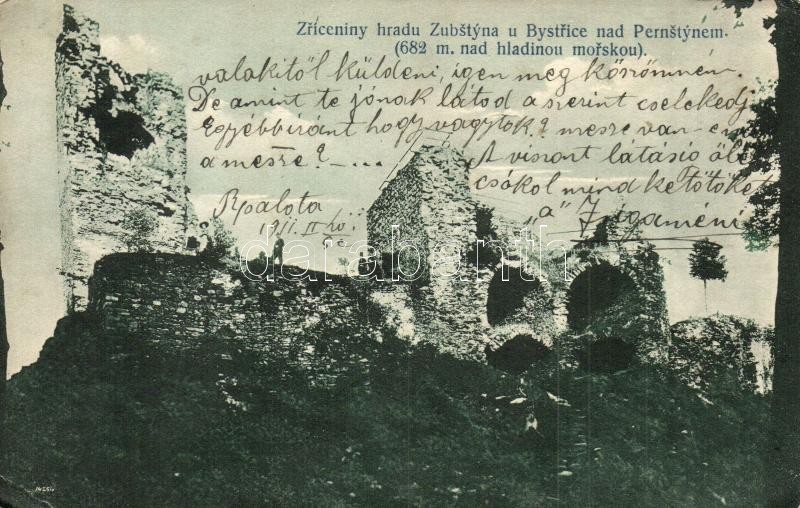 Zříceniny hradu Zubštýna u Bystřice nad Pernštýnem.
(682 m. nad hladinou mořskou).
valakitől küldeni, igen meg köszömném.
De amint te jónak látod a szerint cselekedj
Egyébbiránt hogy vagytok? messze van-e
a messze? –....
A viszont látásig
csókol mindketőtöket
"a" Zigaméni
Rpalota
1911. II hó
darabanth
14256